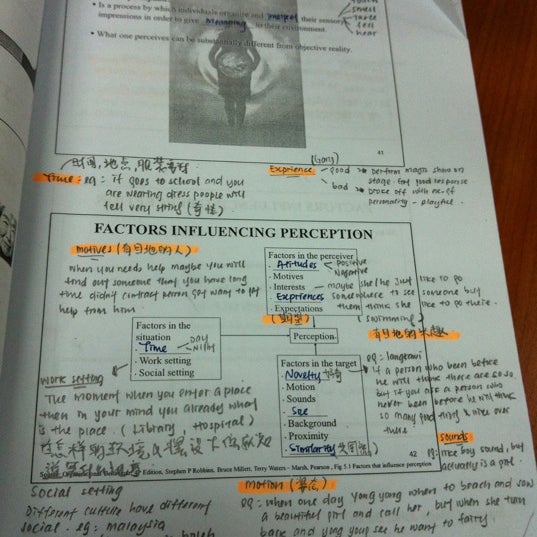 Is a process by which individuals organize and interpret their sensory
impressions in order to give meaning to their environment.
smell
taste
feel
hear
• What one perceives can be substantially different from objective reality.
41
时间,地点,服装
Time: eg: if goes to school and you
are wearing dress people will
feel very string (奇怪)
Exprience
good → perform magic show on
stage get good response
bad → broke off with
personality - playful.
FACTORS INFLUENCING PERCEPTION
motives (有目地的人)
when you needs help maybe you will
find out someone that you have long
time didn't contract person got want to let
help from him
Factors in the perceiver
· Attitudes
positive
Negative
· Motives
· Interests
· Experiences
· Expectations
(期望)
maybe she/he just like to go
someplace to see someone but
them think she like to go there.
(swimming)
Factors in the
situation
· Time
DAY
Night
· Work setting
· Social setting
Perception
Factors in the target
· Novelty
· Motion
· Sounds
· Size
· Background
· Proximity
· Similarity
work setting
The moment when you enter a place
then in your mind you already what
is the place. (Library, Hospital)
eg: langkawi
if a person who been before
he will think there are so so
but if you are a person who
never been before he will think
so many good thing & over
there
sounds
eg: like boy sound, but
actually is a girl.
42
Edition, Stephen P Robbins, Bruce Millett, Terry Waters - Marsh, Pearson, Fig 5.1 Factors that influence perception
Social setting
Different culture have different
social. eg: malaysia
motion (姿态)
eg: when one day yong yang when to beach and saw
a beautiful girl and call her, but when she turn
back and yong yang see he want to